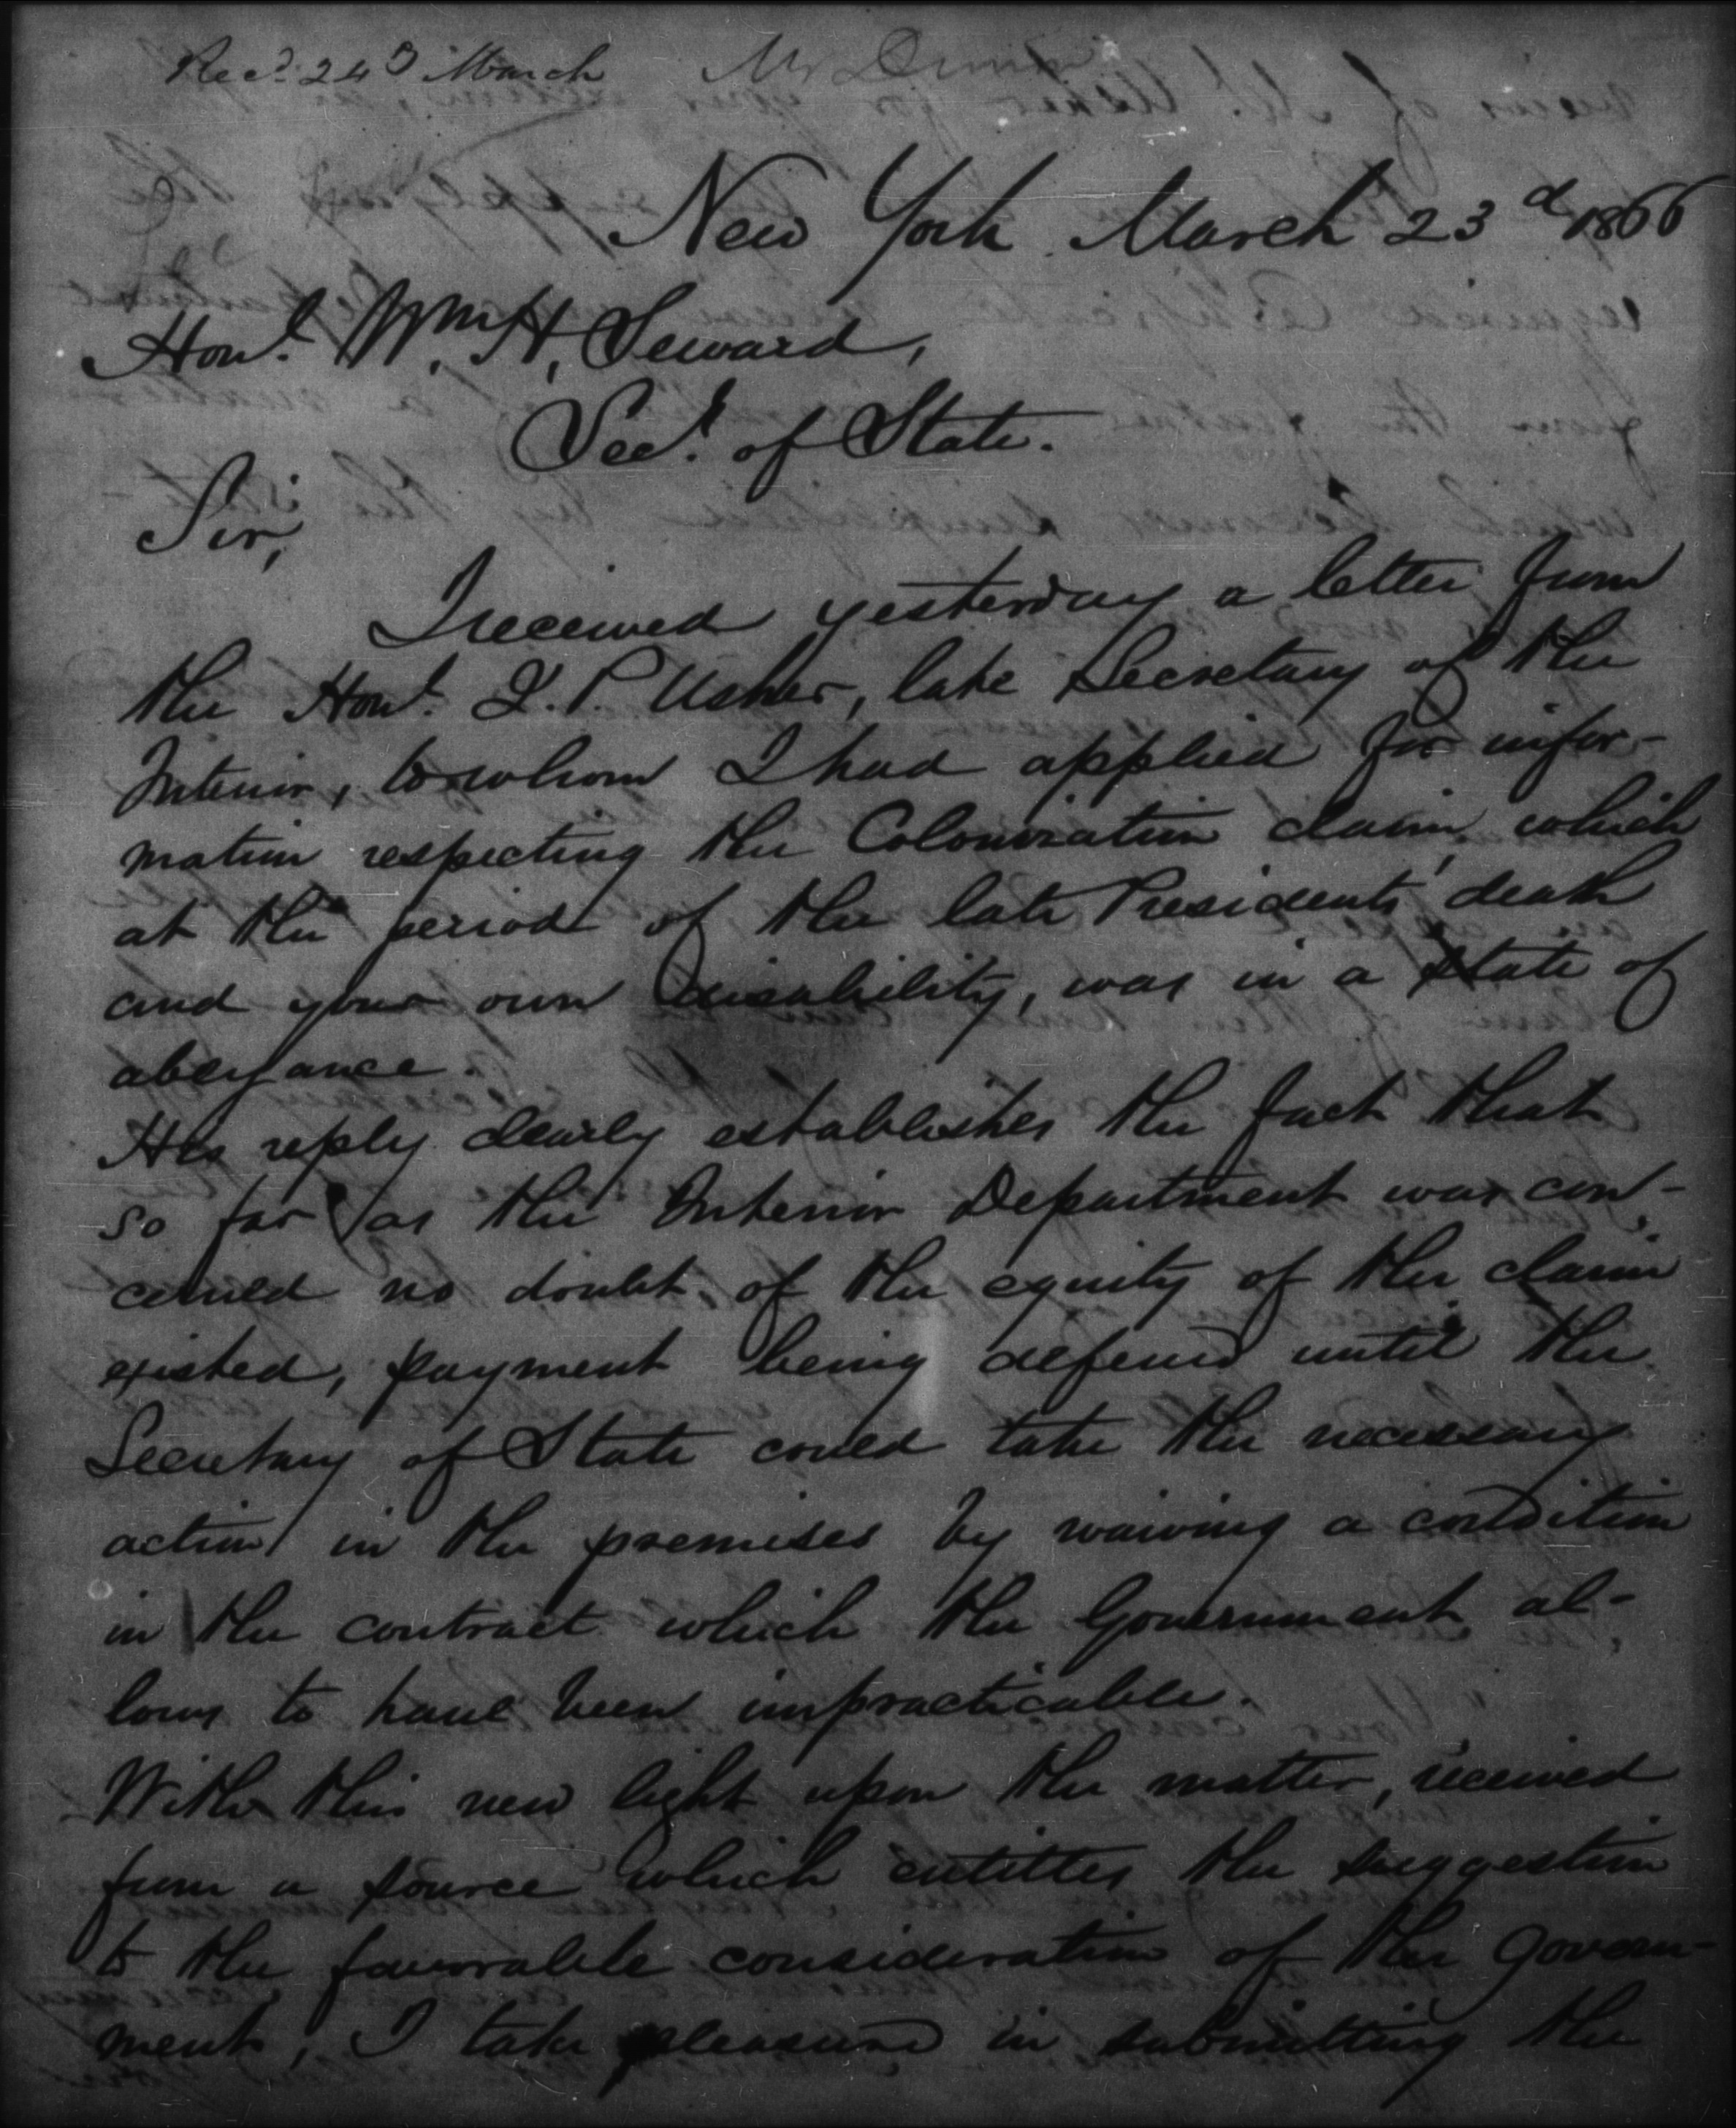 Recd. 24th March
New York March 23d 1866
Honl. Wm. H. Seward,
Secy. of State.
Sir,
I received yesterday a letter from
the Honl. J. P. Usher, late Secretary of the
Interior, to whom I had applied for infor-
mation respecting the Colonization claim, which
at the period of the late Presidents' death
and your own disability, was in a state of
abeyance.
His reply clearly establishes the fact that
so far as the Interior Department was con-
cerned no doubt of the equity of the claim
existed, payment being deferred until the
Secretary of State could take the necessary
action in the premises by waiving a condition
in the contract which the Government al-
lows to have been impracticable.
With this new light upon the matter, received
from a source which entitles the suggestion
to the favorable consideration of the Govern-
ment, I take pleasure in submitting the